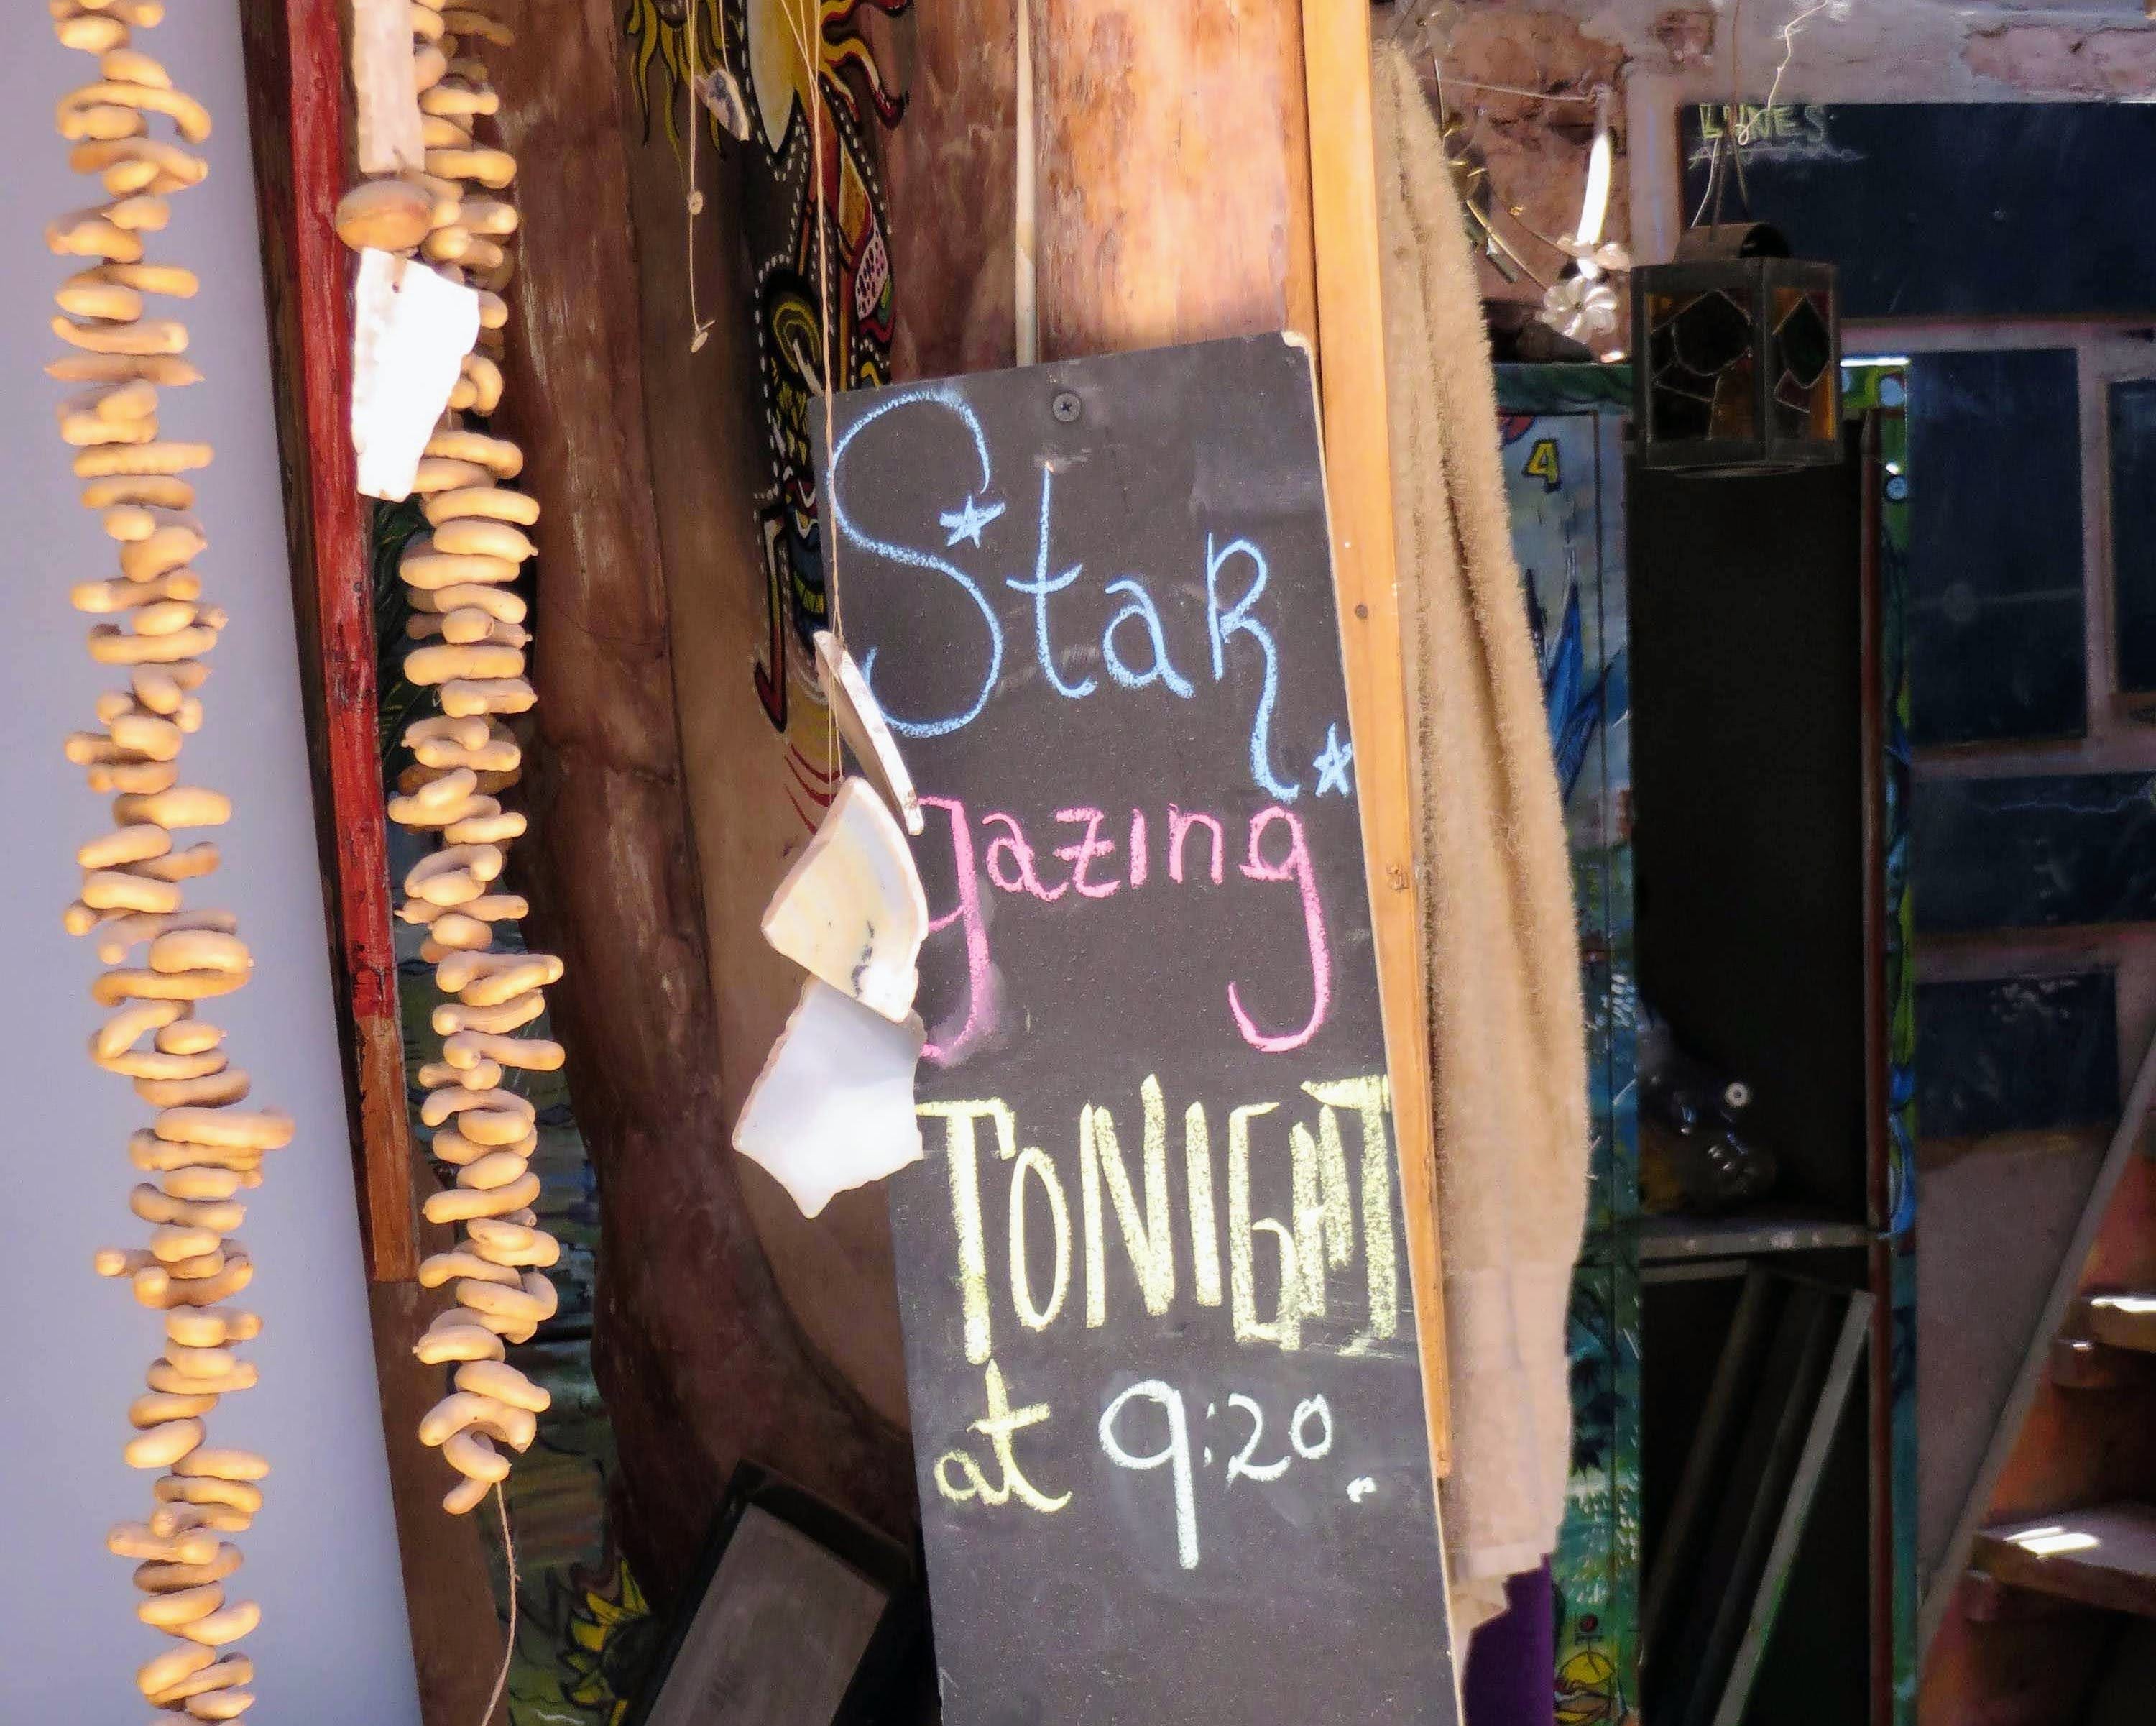 StaR
gazing
TONIGHT
at 9:20.
LUNES
4